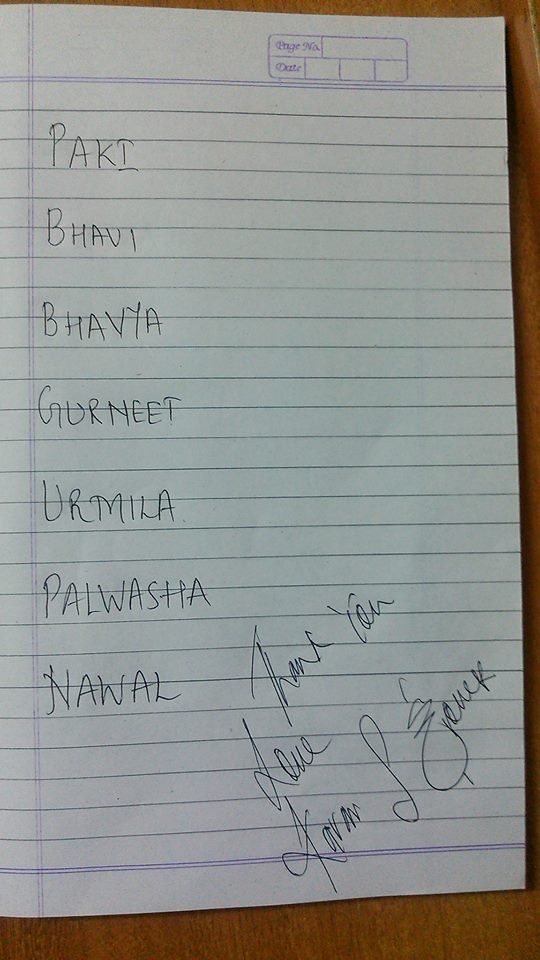 Page No.
Date
PAKI
BHAVI
BHAVYA
GURNEET
URMILA
PALWASHA
NAWAL
Thank You
Love
Karan S